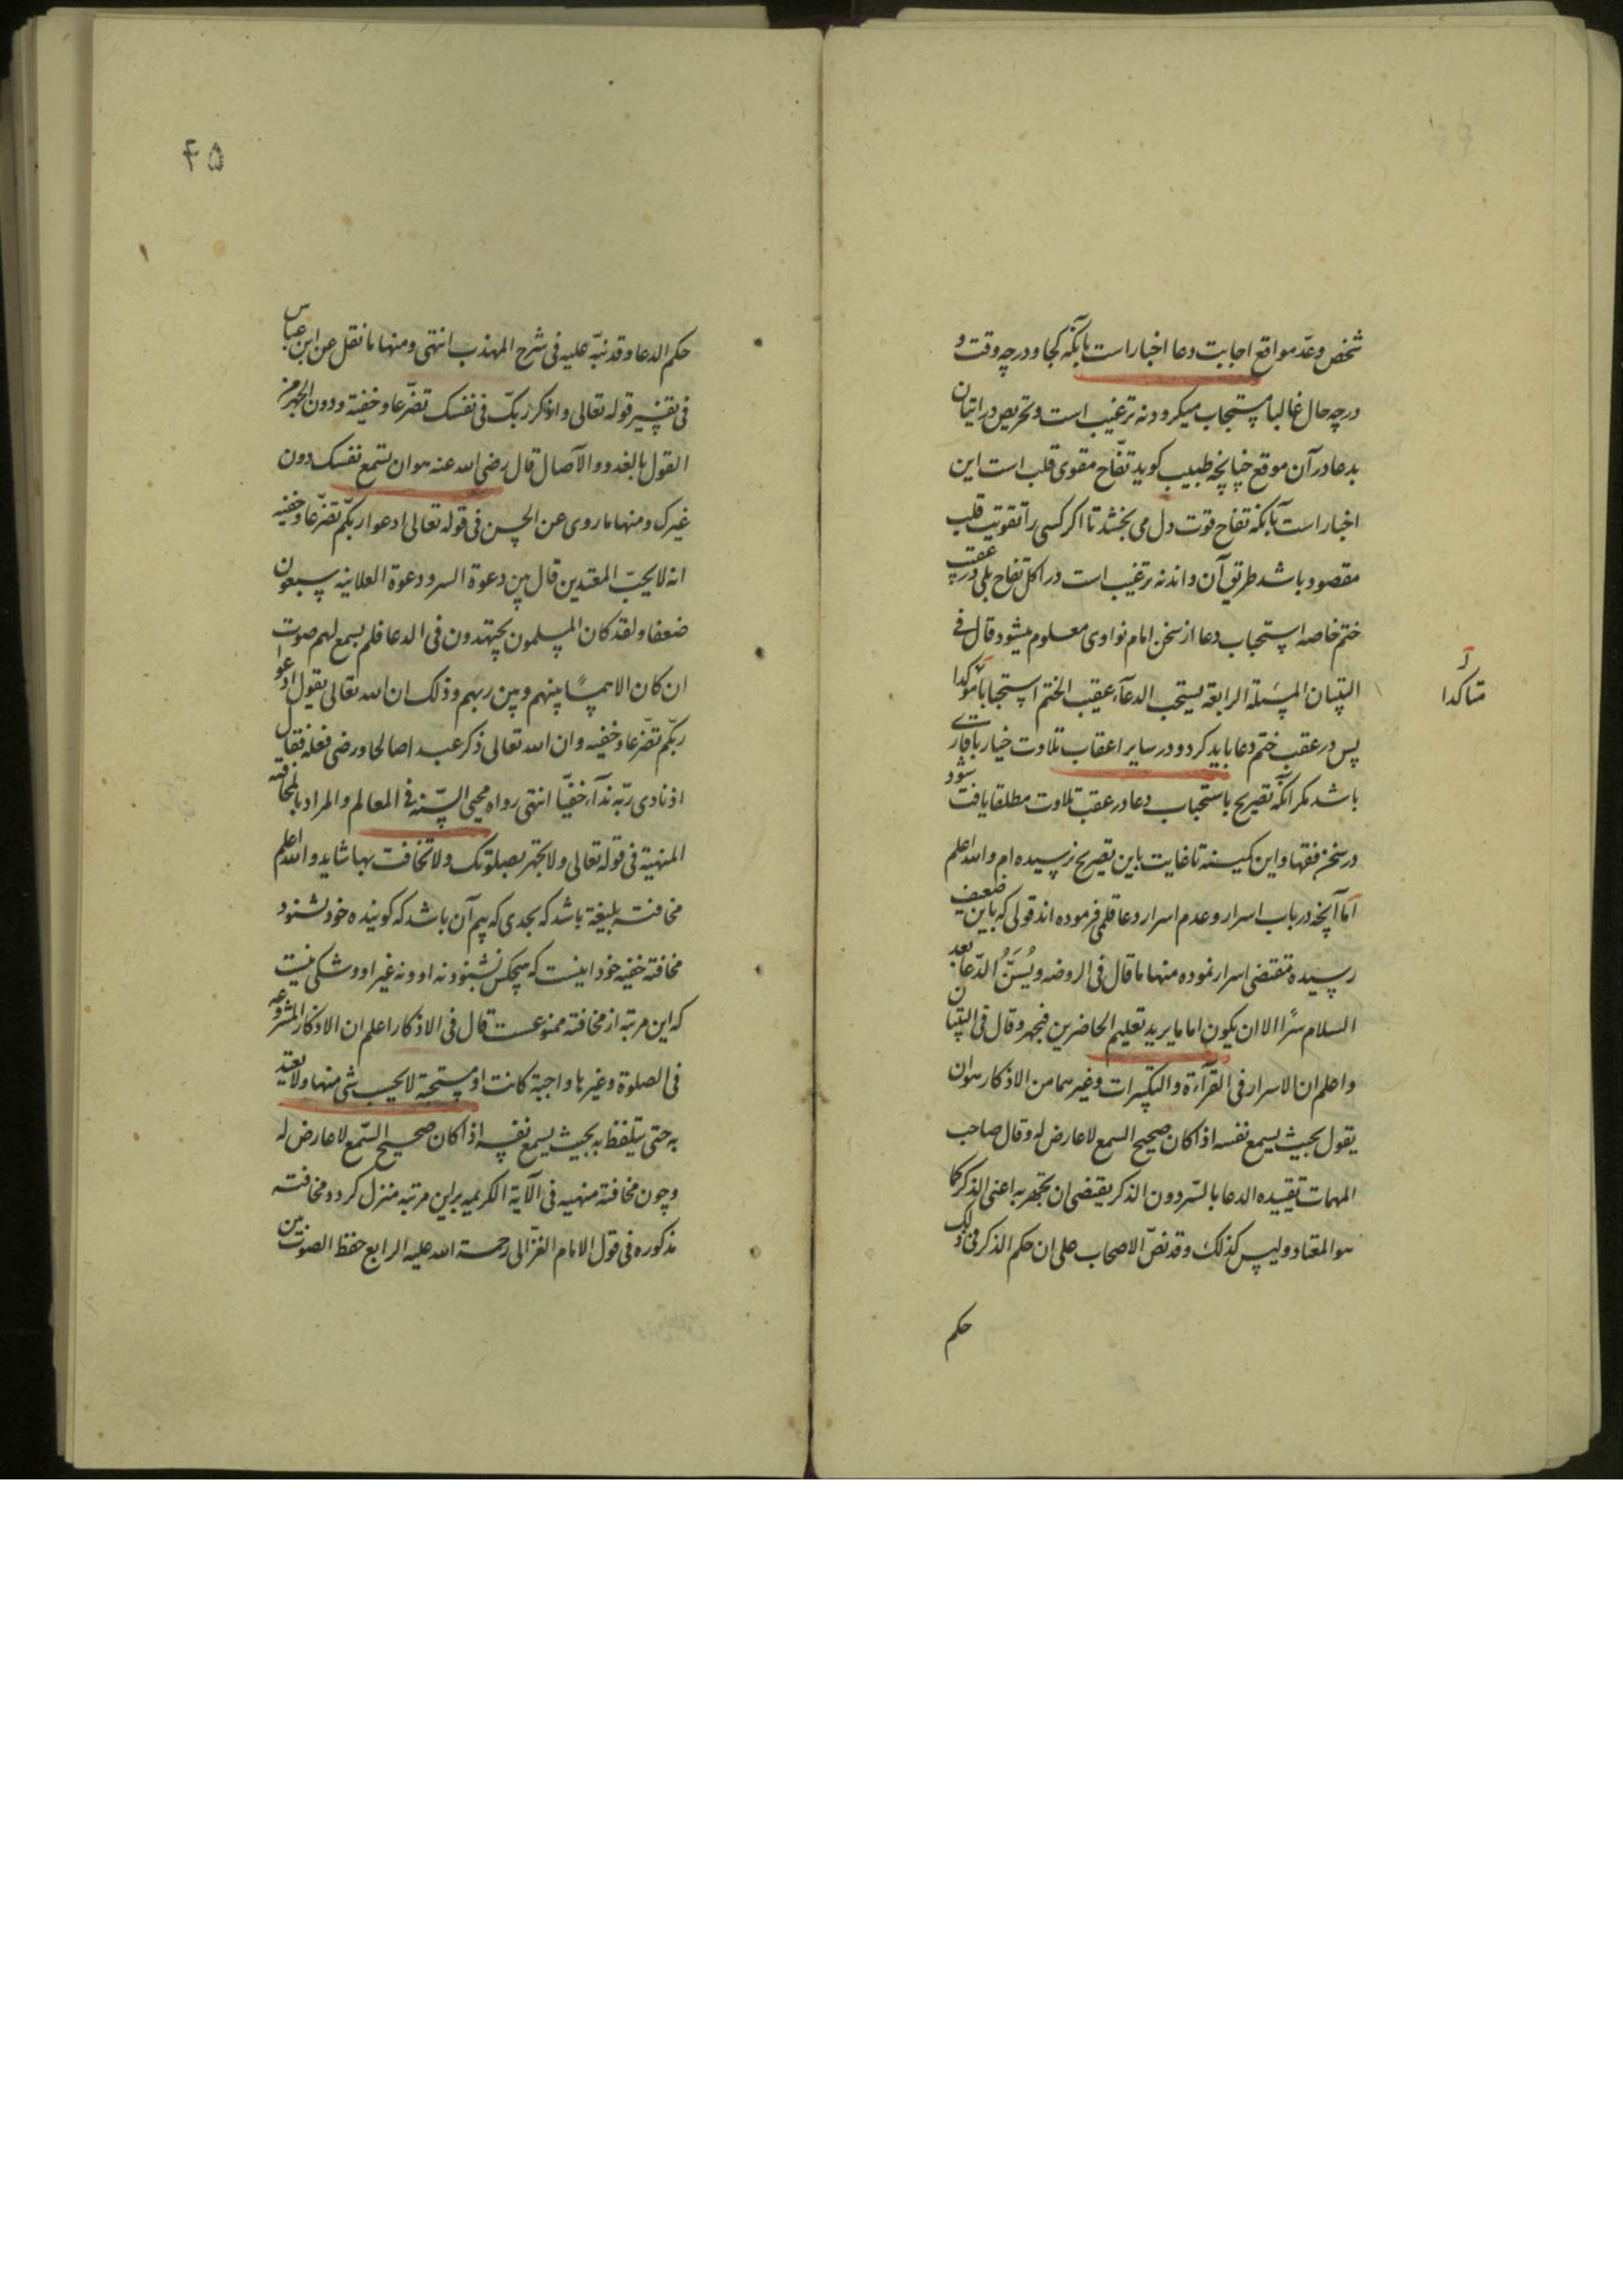 شخص وعدّ مواقع اجابت دعا اخبار است بآنکه کجا و درچه وقت و
درچه حال غالبا مستجاب میکردد نه ترغیب است و تحریص در اتیان
بدعا در آن موقع چنانچه طبیب کوید تفّاح مقوی قلب است این
اخبار است بآنکه تفاح قوت دل می بخشد تا اکر کسی را تقویت قلب
مقصود باشد طریق آن داند نه ترغیب است در اکل تفاح بلی در عقب
ختم خاصه استحباب دعا از سخن امام نواوی معلوم میشود قال فی
التبیان المسئلة الرابعة یستحب الدعآء عقیب الختم استحبابا مؤکدا
متاکدا
پس در عقب ختم دعا باید کرد و در سایر اعقاب تلاوت خیار با قاری
باشد مکر آنکه تصریح باستحباب دعا در عقب تلاوت مطلقا یافت شود
در سخن فقها و این کمینه تا غایت باین تصریح نرسیده ام والله اعلم
امّا آنچه در باب اسرار و عدم اسرار دعا قلمی فرموده اند قولی که باین ضعیف
رسیده مقتضی اسرار نموده منها ما قال فی الروضه ویُسَنُّ الدّعا بعد
السلام سرًّا الا ان یکون اماما یرید تعلیم الحاضرین فیجهر وقال فی التبیان
واعلم ان الاسرار فی القرآءة والتکبیرات وغیرهما من الاذکار هو ان
یقول بحیث یسمع نفسه اذا کان صحیح السمع لا عارض له وقال صاحب
المهمات تقییده الدعا بالسّر دون الذکر یقتضی ان یجهر به اعنی الذکر کما
هو المعتاد ولیس کذلک وقد نصّ الاصحاب علی ان حکم الذکر فی ذلک
حکم
۴۵
حکم الدعا وقد نبّه علیه فی شرح المهذب انتهی ومنها ما نقل عن ابن عباس
فی تفسیر قوله تعالی واذکر ربّک فی نفسک تضرّعا وخفیة ودون الجهر من
القول بالغدو والآصال قال رضی الله عنه هو ان تسمع نفسک دون
غیرک ومنها ما روی عن الحسن فی قوله تعالی ادعوا ربّکم تضرّعا وخفیه
انه لا یحبّ المعتدین قال بین دعوة السر ودعوة العلانیه سبعون
ضعفا ولقد کان المسلمون یجتهدون فی الدعا فلم یسمع لهم صوت
ان کان الا همسًا بینهم وبین ربهم وذلک ان الله تعالی یقول ادعوا
ربّکم تضرّعا وخفیه وان الله تعالی ذکر عبدا صالحا ورضی فعله فقال
اذ نادی ربّه ندآء خفیّا انتهی رواه محیی السّنه فی المعالم والمراد بالمخافته
المنهیة فی قوله تعالی ولا تجهر بصلوتک ولا تخافت بها شاید والله اعلم
مخافتة بلیغة باشد که بحدی که بیم آن باشد که کوینده خود نشنود
مخافتة خفیه خود اینست که هیچکس نشنود نه او ونه غیر او وشکی نیست
که این مرتبه از مخافته ممنوعست قال فی الاذکار اعلم ان الاذکار المشروعه
فی الصلوة وغیرها واجبة کانت او مستحبة لا یحسب شی منها ولا یعتد
به حتی یتلفظ به بحیث یسمع نفسه اذا کان صحیح السّمع لا عارض له
وچون مخافتة منهیه فی الآیة الکریمه براین مرتبه منزل کردد مخافته
مذکوره فی قول الامام الغزّالی رحمة الله علیه الرابع حفظ الصوت بین